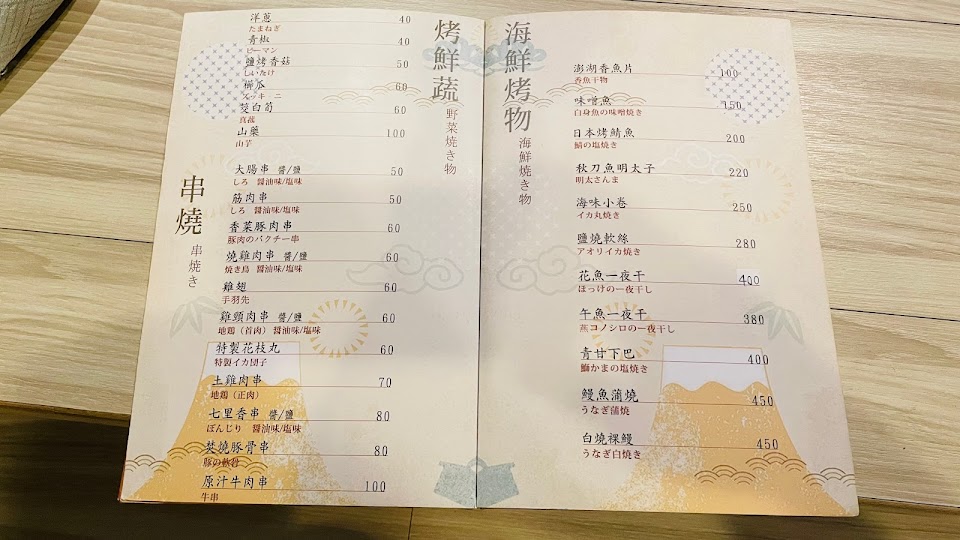 烤鮮蔬 野菜焼き物
洋蔥 40
たまねぎ
青椒 40
ピーマン
鹽烤香菇 50
しいたけ
櫛瓜 60
ズッキーニ
茭白筍 60
真菰
山藥 100
山芋
串燒 串焼き
大腸串 醬/鹽 50
しろ 醤油味/塩味
筋肉串 50
しろ 醤油味/塩味
香菜豚肉串 60
豚肉のパクチー串
燒雞肉串 醬/鹽 60
焼き鳥 醤油味/塩味
雞翅 60
手羽先
雞頸肉串 醬/鹽 60
地鶏（首肉）醤油味/塩味
特製花枝丸 60
特製イカ団子
土雞肉串 70
地鶏（正肉）
七里香串 醬/鹽 80
ぼんじり 醤油味/塩味
焚燒豚骨串 80
豚の軟骨
原汁牛肉串 100
牛串
海鮮烤物 海鮮焼き物
澎湖香魚片 100
香魚干物
味噌魚 150
白身魚の味噌焼き
日本烤鯖魚 200
鯖の塩焼き
秋刀魚明太子 220
明太さんま
海味小卷 250
イカ丸焼き
鹽燒軟絲 280
アオリイカ焼き
花魚一夜干 400
ほっけの一夜干し
午魚一夜干 380
コノシロの一夜干し
青甘下巴 400
鰤かまの塩焼き
鰻魚蒲燒 450
うなぎ蒲焼
白燒裸鰻 450
うなぎ白焼き